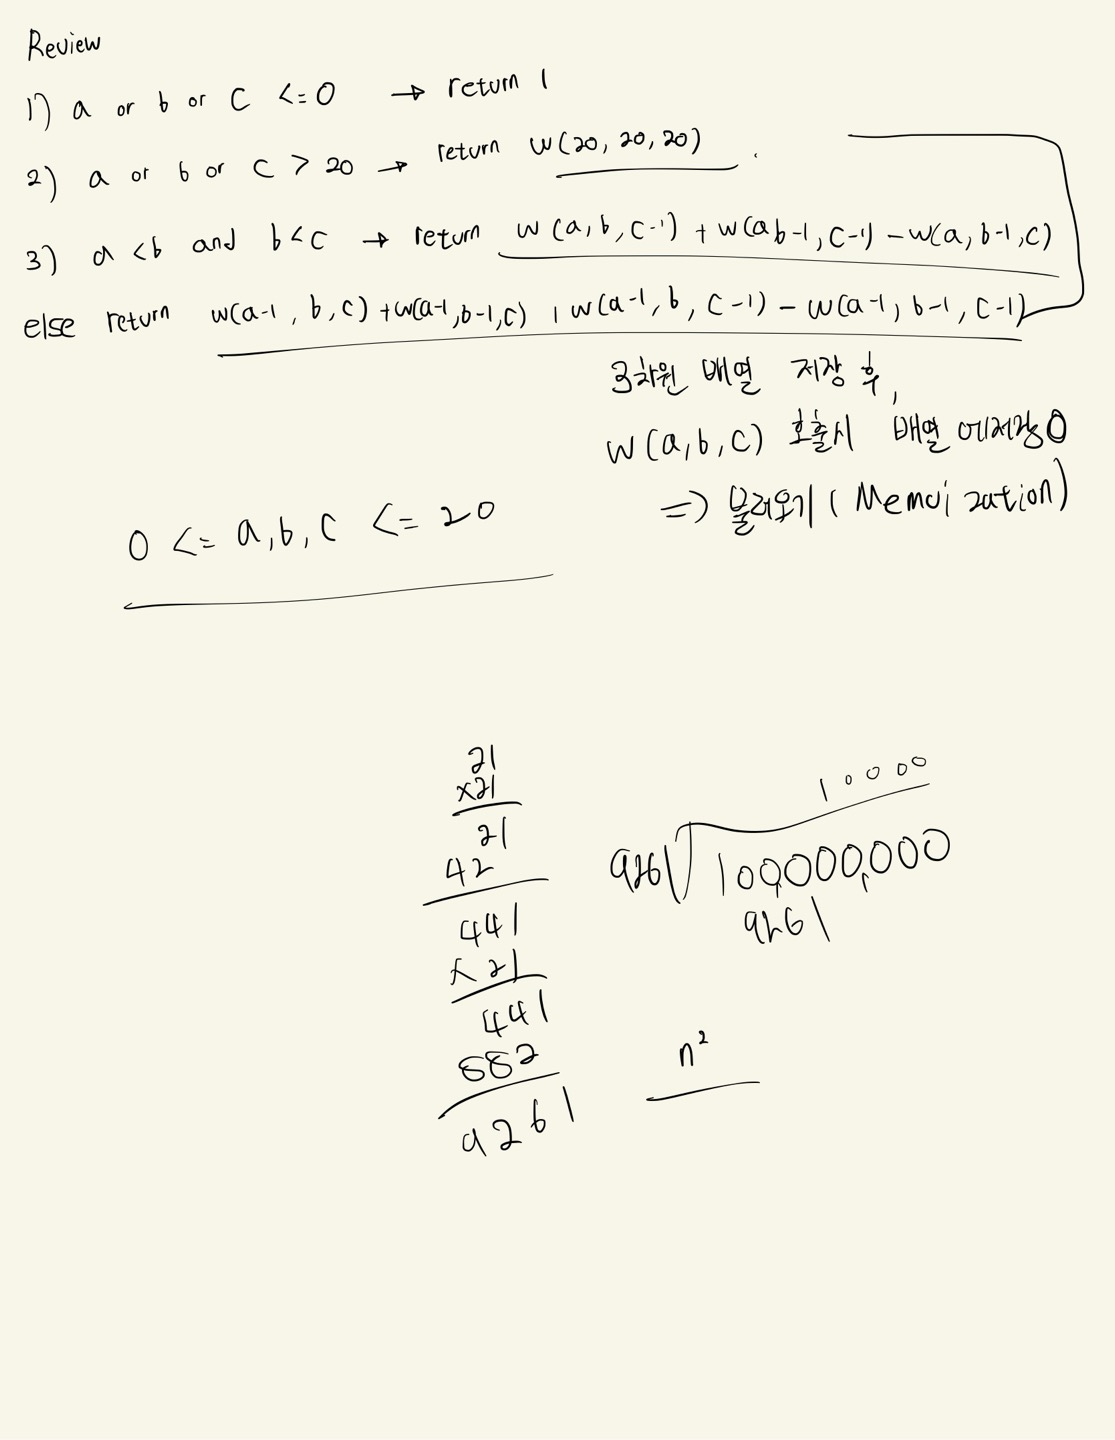 Review
1) a or b or c <=0 → return 1
2) a or b or c > 20 → return w(20, 20, 20)
3) a<b and b<c → return w(a,b,c-1) + w(ab-1,c-1) - w(a,b-1,c)
else return w(a-1, b, c) + w(a-1,b-1,c) + w(a-1, b, c-1) - w(a-1, b-1, c-1)
3차원 배열 저장 후,
w(a,b,c) 호출시 배열에저장O
=> 불러오기 (Memoization)
0 <= a,b,c <= 20
21
x21
21
42
441
x 21
441
882
9261
10000
9261 100,000,000
9261
n²